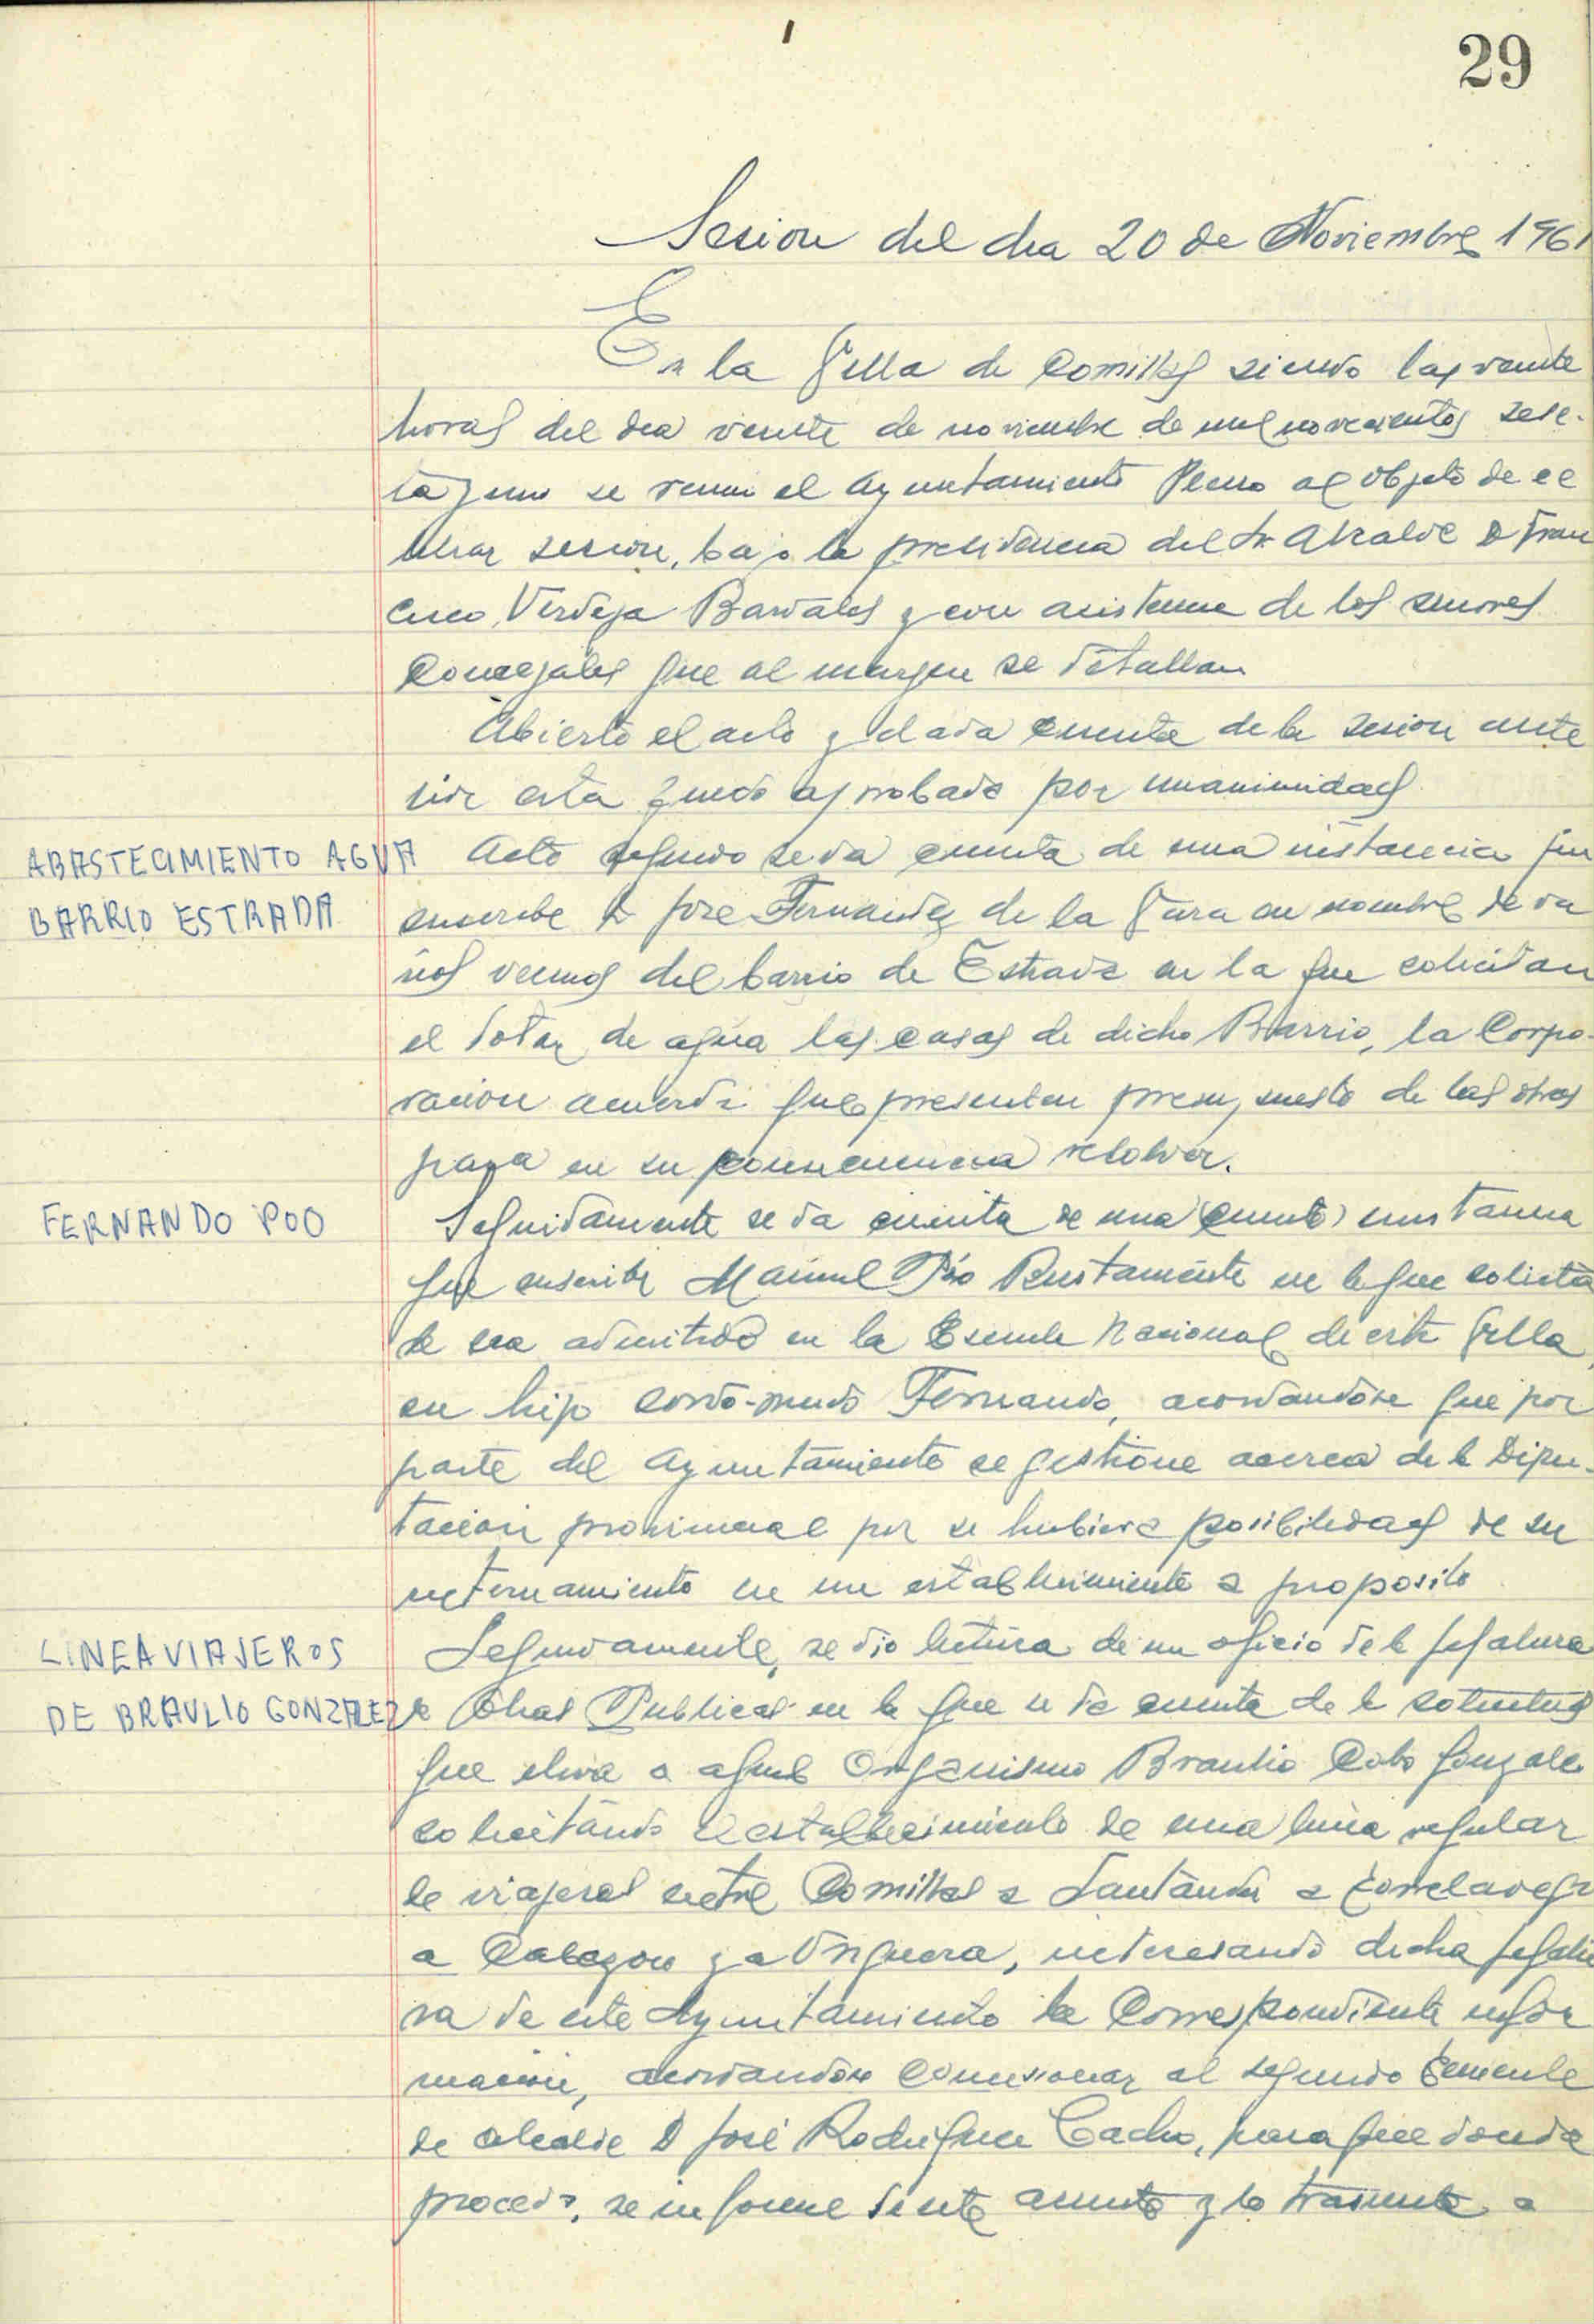 29
Sesion del dia 20 de Noviembre 1961
En la Villa de Comillas siendo las veinte
horas del dia veinte de noviembre de mil novecientos sese-
ta y uno se reune el Ayuntamiento Pleno al objeto de ce
lebrar sesion, bajo la presidencia del Sr Alcalde D Fran
cisco Verdeja Bardales y con asistencia de los señores
Concejales que al margen se detallan
Abierto el acto y dada cuenta de la sesion ante
rior esta quedó aprobada por unanimidad
ABASTECIMIENTO AGUA
BARRIO ESTRADA
Acto seguido se da cuenta de una instancia que
suscribe D Jose Fernandez de la Vara en nombre de va
rios vecinos del barrio de Estrada en la que solicitan
el dotar de agua las casas de dicho Barrio, la Corpo-
racion acuerda que presenten presupuesto de las obras
para en su consecuencia resolver.
FERNANDO POO
Seguidamente se da cuenta de una (cuenta) instancia
que suscribe Manuel Póo Bustamante en la que solicita
le sea admitido en la Escuela Nacional de esta Villa,
su hijo sordo-mudo Fernando, acordandose que por
parte del Ayuntamiento se gestione acerca de la Dipu-
tacion provincial por si hubiera posibilidad de su
internamiento en un establecimiento a proposito
LINEA VIAJEROS
DE BRAULIO GONZALEZ
Seguidamente, se dio lectura de un oficio de la Jefatura
de Obras Publicas en la que se da cuenta de la solicitud
que eleva a aquel Organismo Braulio Cobo Gonzalez
solicitando el establecimiento de una linea regular
de viajeros entre Comillas a Santander a Torrelavega
a Cabezon y a Unquera, interesando dicha Jefatu
ra de este Ayuntamiento la Correspondiente infor
macion, acordandose comisionar al segundo Teniente
de alcalde D José Rodriguez Cacho, para que donde
proceda, se informe de este asunto y lo trasmita a